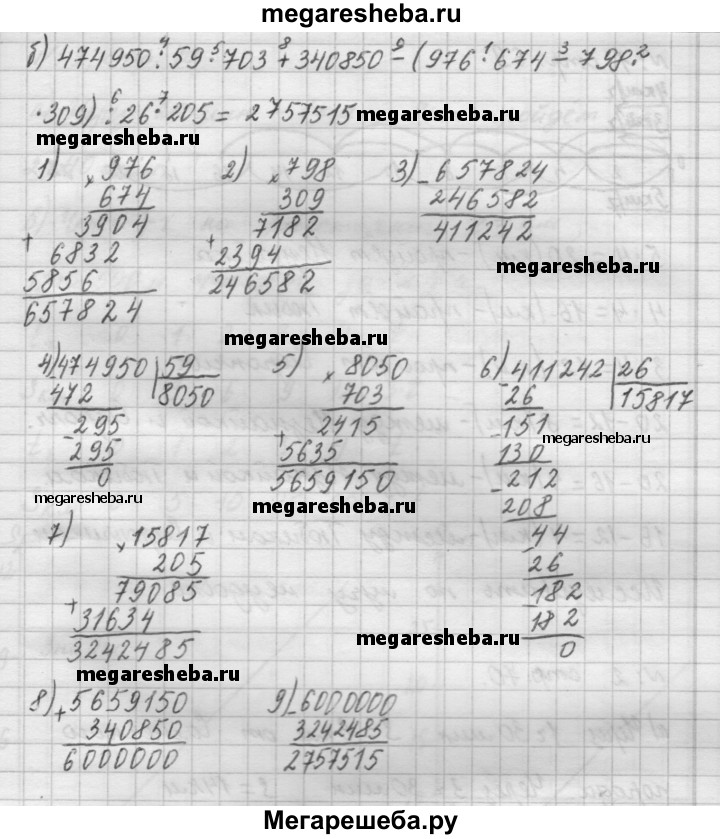 megaresheba.ru
б) 474950 : 59 · 703 + 340850 − (976 · 674 − 798 ·
4 5 8 9 1 3 2
· 309) : 26 · 205 = 2757515
6 7
megaresheba.ru
megaresheba.ru
1) × 976
674
3904
+ 6832
5856
657824
2) × 798
309
7182
+ 2394
246582
3) − 657824
246582
411242
megaresheba.ru
megaresheba.ru
4) 474950 | 59
472 | 8050
− 295
295
0
5) × 8050
703
2415
+ 5635
5659150
6) − 411242 | 26
26 | 15817
− 151
130
− 212
208
− 44
26
− 182
182
0
megaresheba.ru
megaresheba.ru
megaresheba.ru
7) × 15817
205
79085
+ 31634
3242485
megaresheba.ru
megaresheba.ru
8) + 5659150
340850
6000000
9) − 6000000
3242485
2757515
Мегарешеба.ру